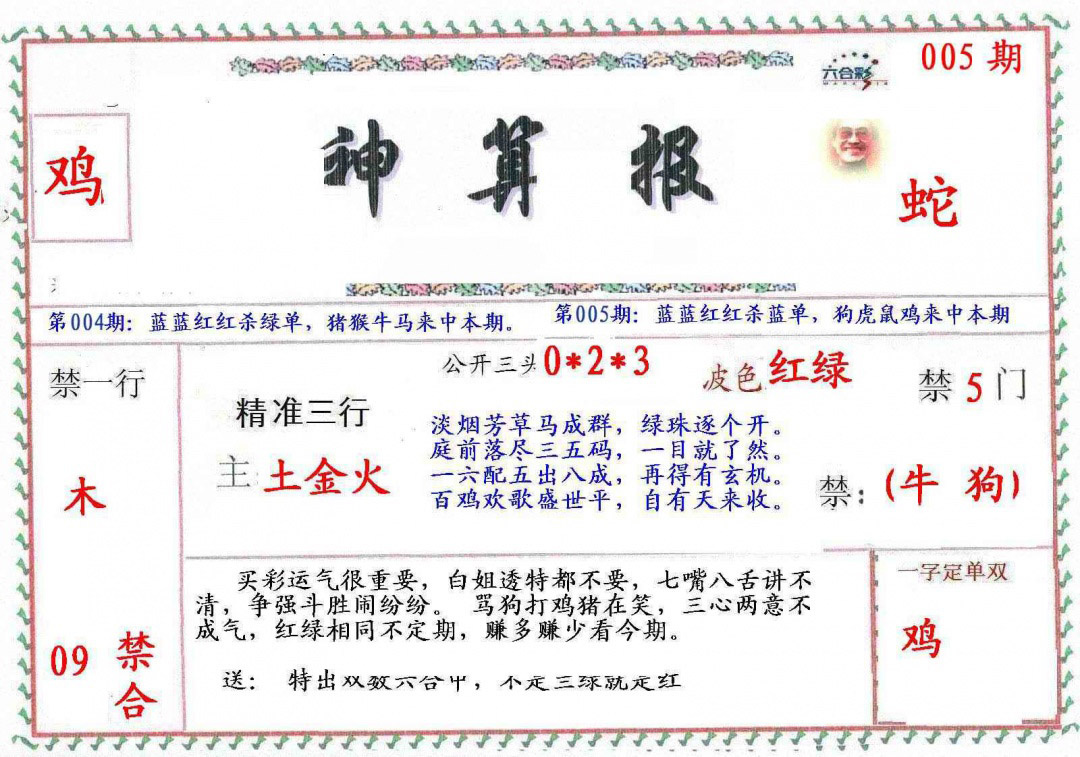 005 期
六合彩
神算报
鸡
蛇
第004期：蓝蓝红红杀绿单，猪猴牛马来中本期。
第005期：蓝蓝红红杀蓝单，狗虎鼠鸡来中本期
禁一行
木
09 禁合
精准三行
主 土金火
公开三头 0*2*3
波色 红绿
禁 5 门
淡烟芳草马成群，绿珠逐个开。
庭前落尽三五码，一目就了然。
一六配五出八成，再得有玄机。
百鸡欢歌盛世平，自有天来收。
禁：(牛 狗)
买彩运气很重要，白姐透特都不要，七嘴八舌讲不
清，争强斗胜闹纷纷。 骂狗打鸡猪在笑，三心两意不
成气，红绿相同不定期，赚多赚少看今期。
送： 特出双数六合中，不是三绿就是红
一字定单双
鸡